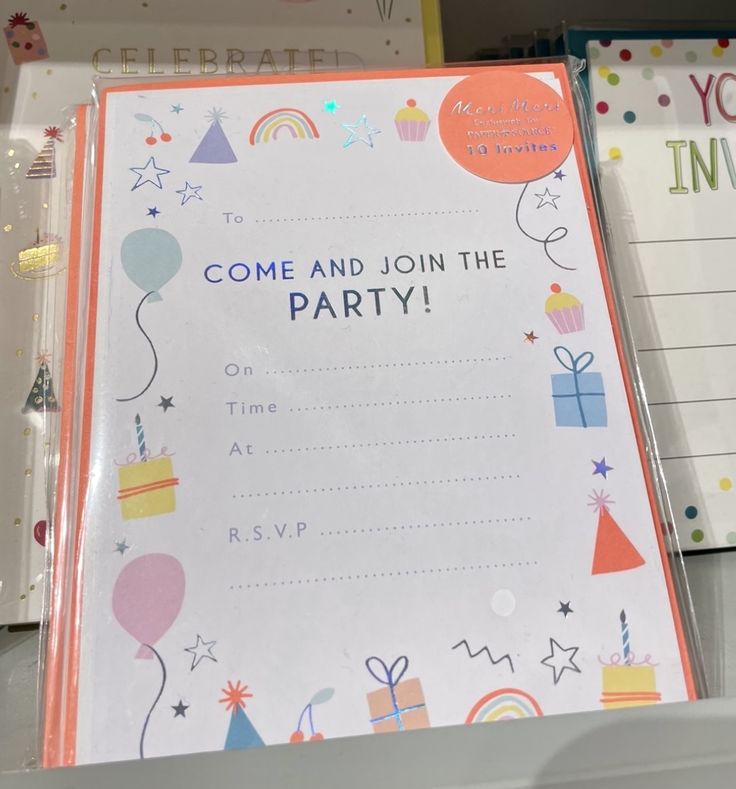 CELEBRATE!
Meri Meri
Exclusively for
PAPER SOURCE
10 Invites
To
COME AND JOIN THE
PARTY!
On
Time
At
R.S.V.P
YO
INV